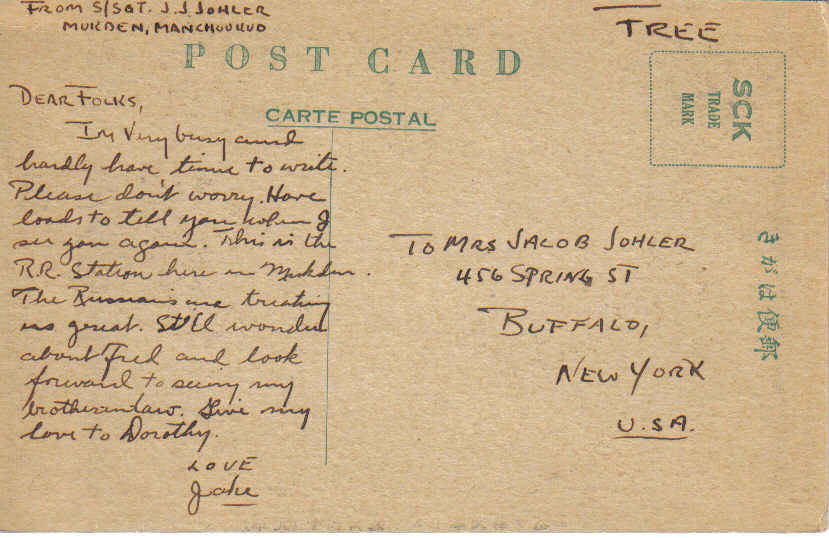 FROM S/SGT. J.J. JOHLER
MUKDEN, MANCHOUKUO
FREE
POST CARD
CARTE POSTAL
SCK
TRADE
MARK
DEAR FOLKS,
Im Very busy and
hardly have time to write.
Please don't worry. Have
loads to tell you when I
see you again. This is the
R.R. Station here in Mukden.
The Russians are treating
us great. Still wonder
about Fred and look
forward to seeing my
brotherinlaw. Give my
love to Dorothy.
LOVE
Jake
TO MRS JACOB JOHLER
456 SPRING ST
BUFFALO,
NEW YORK
U.S.A.
郵便はがき